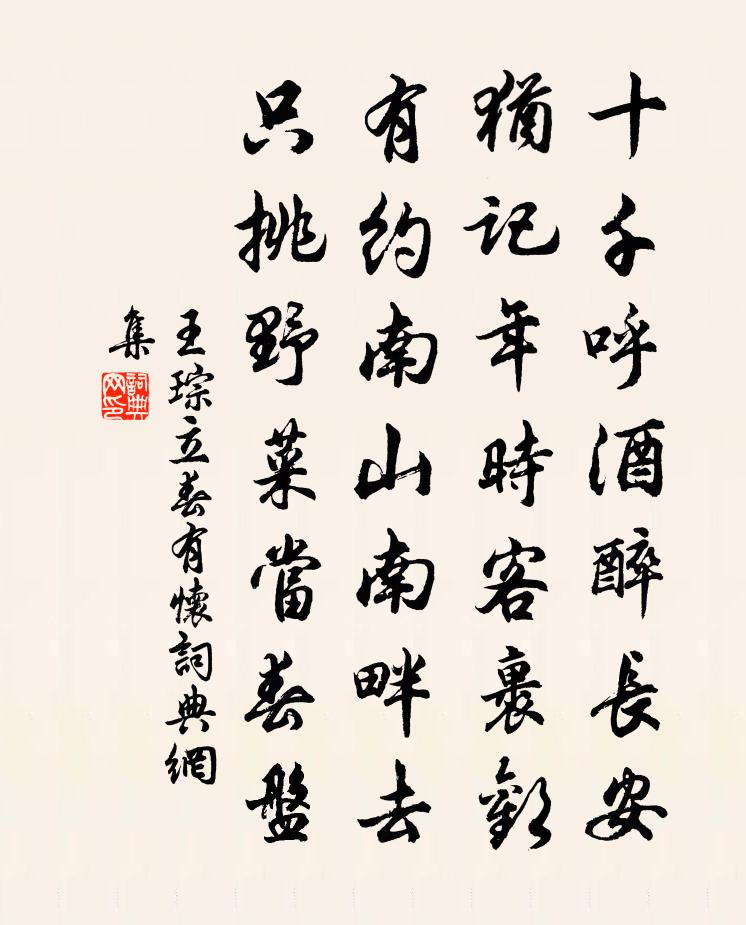 十千呼酒醉長安
猶記年時客裏歡
有約南山南畔去
只挑野菜當春盤
王琮立春有懷詞典網
集
詞典网印